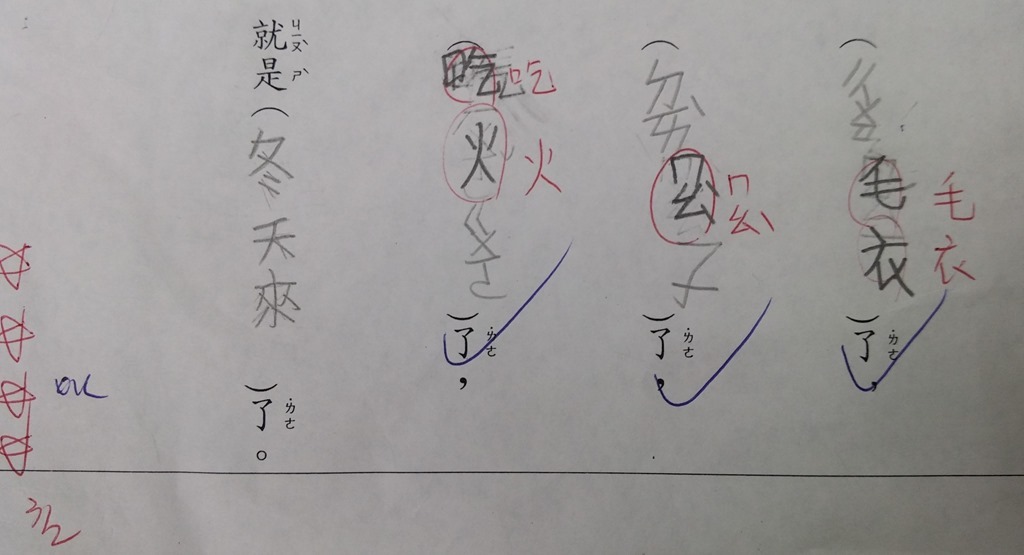 （ㄔㄨㄢ毛衣）了ㄌㄜ˙，
毛衣
（ㄉㄞˋㄇㄠˋ子）了ㄌㄜ˙，
ㄇㄠˋ
（吃火ㄍㄨㄛ）了ㄌㄜ˙，
吃
火
就ㄐㄧㄡˋ是ㄕˋ（冬天來）了ㄌㄜ˙。
ok
3/2